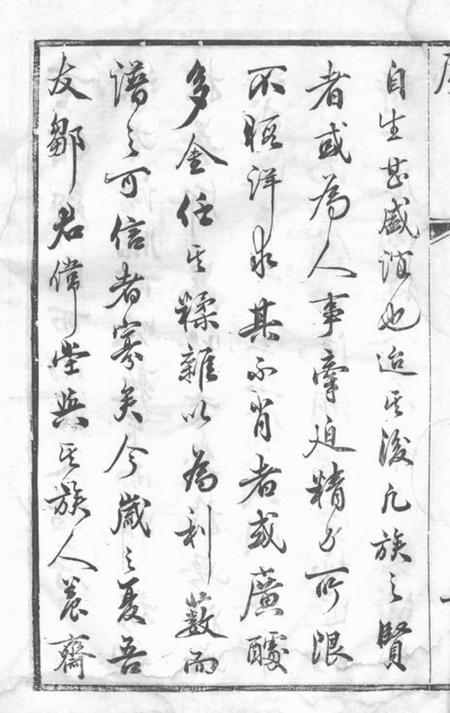 自生甚盛誼也迨其後凡族之賢
者或為人事牽迫精力所限
不暇詳求其不肖者或廣醵
多金任其糅雜以為利藪而
譜之可信者寡矣今歲之夏吾
友鄒君偉堂與其族人養齋